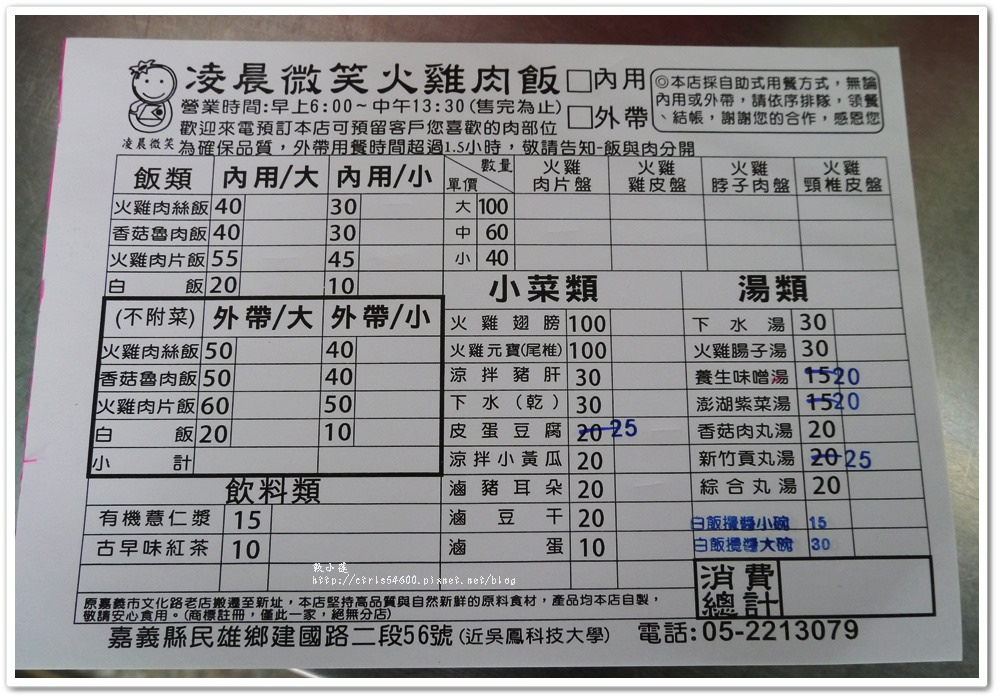 凌晨微笑火雞肉飯 □內用
□外帶
營業時間:早上6:00~中午13:30(售完為止)
歡迎來電預訂本店可預留客戶您喜歡的肉部位
凌晨微笑 為確保品質，外帶用餐時間超過1.5小時，敬請告知-飯與肉分開
◎本店採自助式用餐方式，無論
內用或外帶，請依序排隊，領餐
、結帳，謝謝您的合作，感恩您
飯類 內用/大 內用/小
火雞肉絲飯 40 30
香菇魯肉飯 40 30
火雞肉片飯 55 45
白飯 20 10
數量 單價 火雞肉片盤 火雞雞皮盤 火雞脖子肉盤 火雞頸椎皮盤
大 100
中 60
小 40
(不附菜) 外帶/大 外帶/小
火雞肉絲飯 50 40
香菇魯肉飯 50 40
火雞肉片飯 60 50
白飯 20 10
小計
飲料類
有機薏仁漿 15
古早味紅茶 10
小菜類
火雞翅膀 100
火雞元寶(尾椎) 100
涼拌豬肝 30
下水(乾) 30
皮蛋豆腐 20 25
涼拌小黃瓜 20
滷豬耳朵 20
滷豆干 20
滷蛋 10
湯類
下水湯 30
火雞腸子湯 30
養生味噌湯 15 20
澎湖紫菜湯 15 20
香菇肉丸湯 20
新竹貢丸湯 20 25
綜合丸湯 20
白飯攪醬小碗 15
白飯攪醬大碗 30
消費
總計
軟小蓮
http://ctrls54600.pixnet.net/blog
原嘉義市文化路老店搬遷至新址，本店堅持高品質與自然新鮮的原料食材，產品均本店自製，
敬請安心食用。(商標註冊，僅此一家，絕無分店)
嘉義縣民雄鄉建國路二段56號(近吳鳳科技大學) 電話:05-2213079